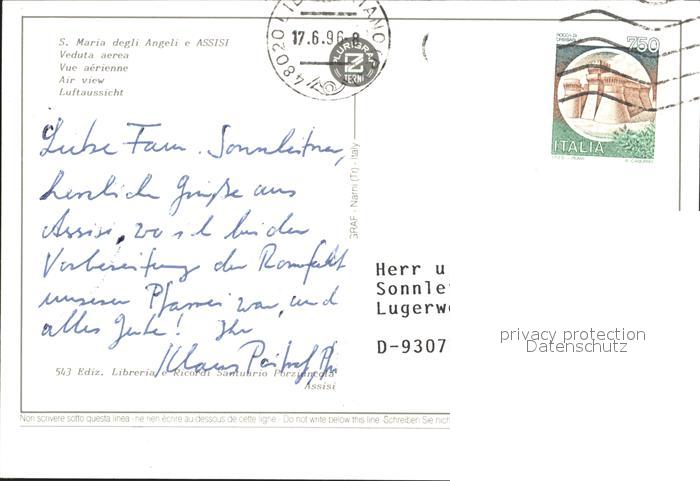 S. Maria degli Angeli e ASSISI
Veduta aerea
Vue aérienne
Air view
Luftaussicht
17.6.96-8
48020
PLURIGRAF
TERNI
ROCCA DI
750
ITALIA
GRAF - Narni (Tr) - Italy
Liebe Fam. Sonnleitner,
herzliche Grüße aus
Assisi, wo ich bei der
Vorbereitung der Romfahrt
unserer Pfarrei war, und
alles Gute! Ihr
Klaus
Herr u
Sonnle
Lugerwe
D-9307
privacy protection
Datenschutz
543 Ediz. Libreria e Ricordi Santuario Porziuncola
Assisi
Non scrivere sotto questa linea - ne rien écrire au-dessous de cette ligne - Do not write below this line - Schreiben Sie nich